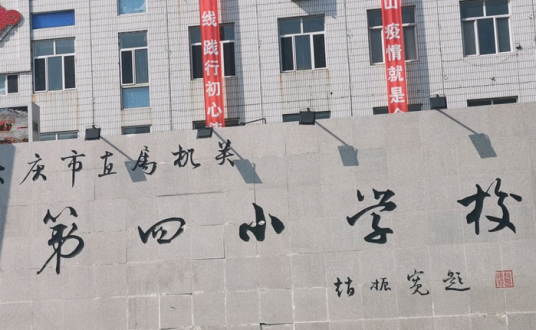 线践行初心
山疫情就是
庆市直属机关
第四小学校
振宽题